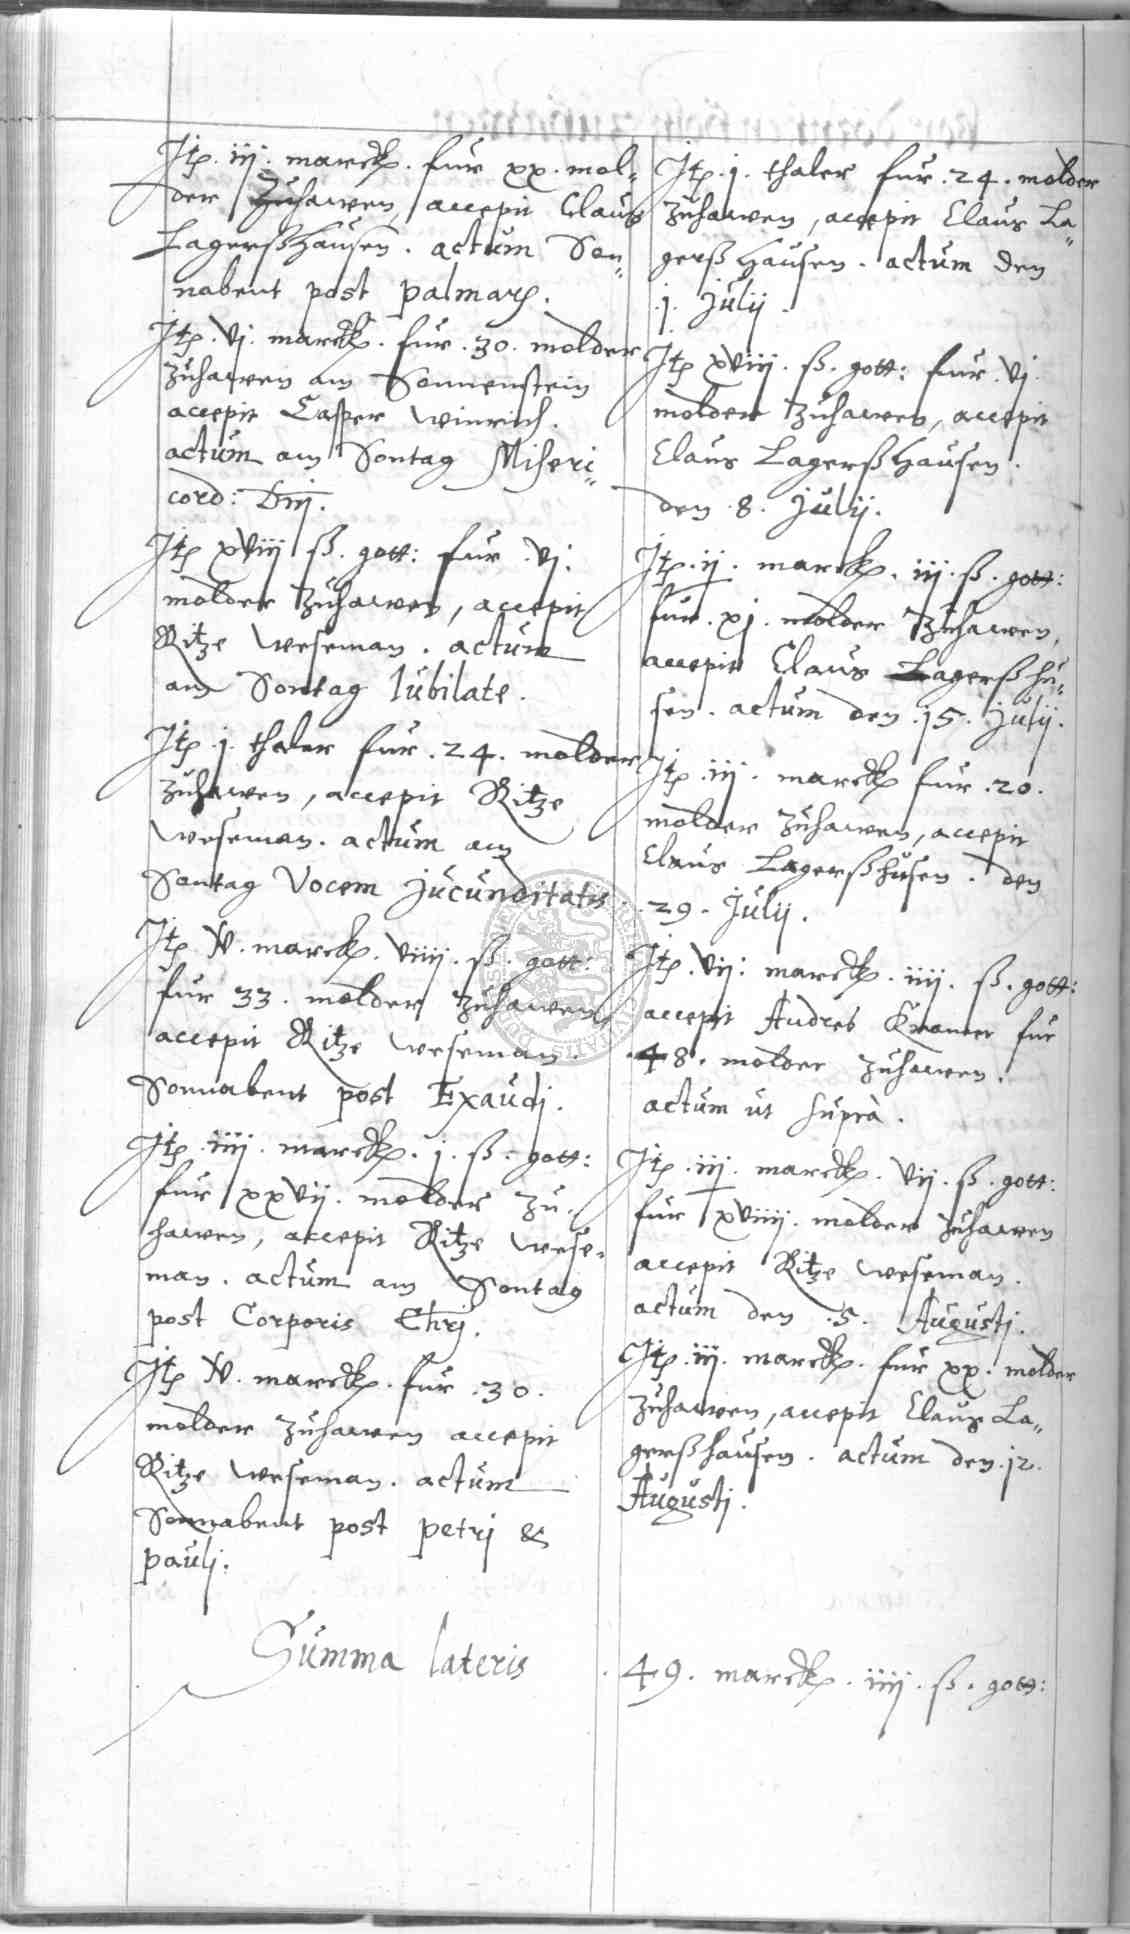 Jtp. iij. marck. fur xx. mol„
der Zuhawen, accepit Claus
Lagerßhausen. actum Son„
nabent post palmarũ.
Jtp. vj. marck. fur. 30. molder
Zuhawen am Sonnenstein
accepit Casper Winrich.
actum am Sontag Miseri„
cord: Dnj.
Jtp xviij ß. gott: fur. vj.
molder Zuhawen, accepit
Ritze Weseman. actum
am Sontag Iubilate.
Jtp. j. thaler fur. 24. molder
Zuhawen, accepit Ritze
Weseman. actum am
Sontag Vocem Jucunditatis
Jtp N. marck. viiij. ß. gott:
fur 33. molder Zuhawen,
accepit Ritze Weseman.
Sonnabent post Exaudj.
Jtp. iiij. marck. j. ß. gott:
fur xxvij. molder Zu„
hawen, accepit Ritze Wese„
man. actum am Sontag
post Corporis Chrj.
Jtp N. marck. fur. 30.
molder Zuhawen accepit
Ritze Weseman. actum
Sonnabent post petrj &
paulj.
Jtp. j. thaler fur. 24. molder
Zuhawen, accepit Claus La„
gerßhausen. actum den
j. Julij.
Jtp xviij. ß. gott: fur. vj.
molder Zuhawen, accepit
Claus Lagerßhausen.
den. 8. Julij.
Jtp. ij. marck. iij. ß. gott:
fur. xj. molder Zuhawen,
accepit Claus Lagerßhu„
sen. actum den. 15. Julij.
Jtp. iij. marck fur. 20.
molder Zuhawen, accepit
Claus Lagerßhusen. den
. 29. Julij.
Jtp. vij: marck. iiij. ß. gott:
accepit Andres Kramer fur
. 48. molder Zuhawen.
actum ut suprà.
Jtp. iij. marck. vij. ß. gott:
fur xviiij. molder Zuhawen
accepit Ritze Weseman.
actum den. 5. Augustj.
Jtp. iij. marck. fur xx. molder
Zuhawen, accepit Claus La„
gerßhausen. actum den. 12.
Augustj.
Summa lateris . 49. marck. iiij. ß. gott: